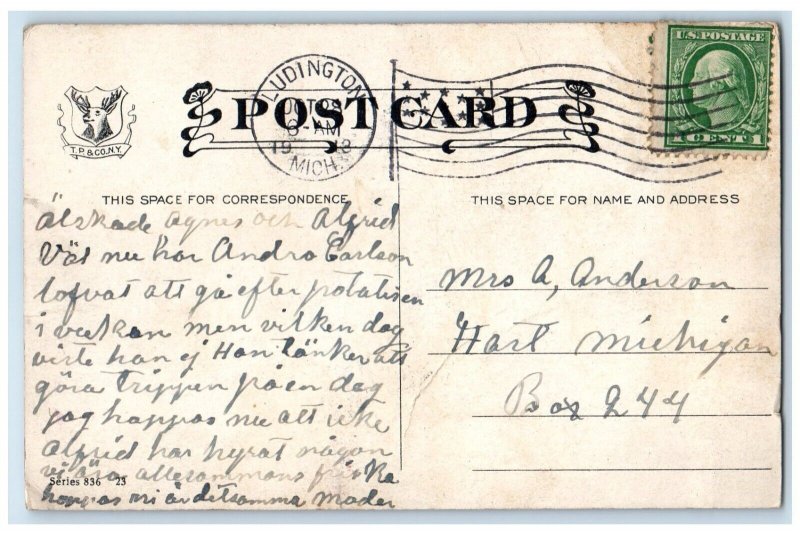 U.S. POSTAGE
1 CENT 1
LUDINGTON
OCT 28
6-AM
MICH.
POST CARD
T.P. & CO. N.Y.
THIS SPACE FOR CORRESPONDENCE
THIS SPACE FOR NAME AND ADDRESS
älskade Agnes och Algrid
Väs nu har Andro Carlson
lofvat att gå efter potatisen
i veckan men vilken dag
viste han ej Han tänker att
göra trippen på en dag
jag hoppas nu att icke
Algrid har hyrat någon
vi äro allesammans friska
hoppas ni är detsamma Moder
Series 836 23
Mrs A, Anderson
Hart Michigan
Box 244